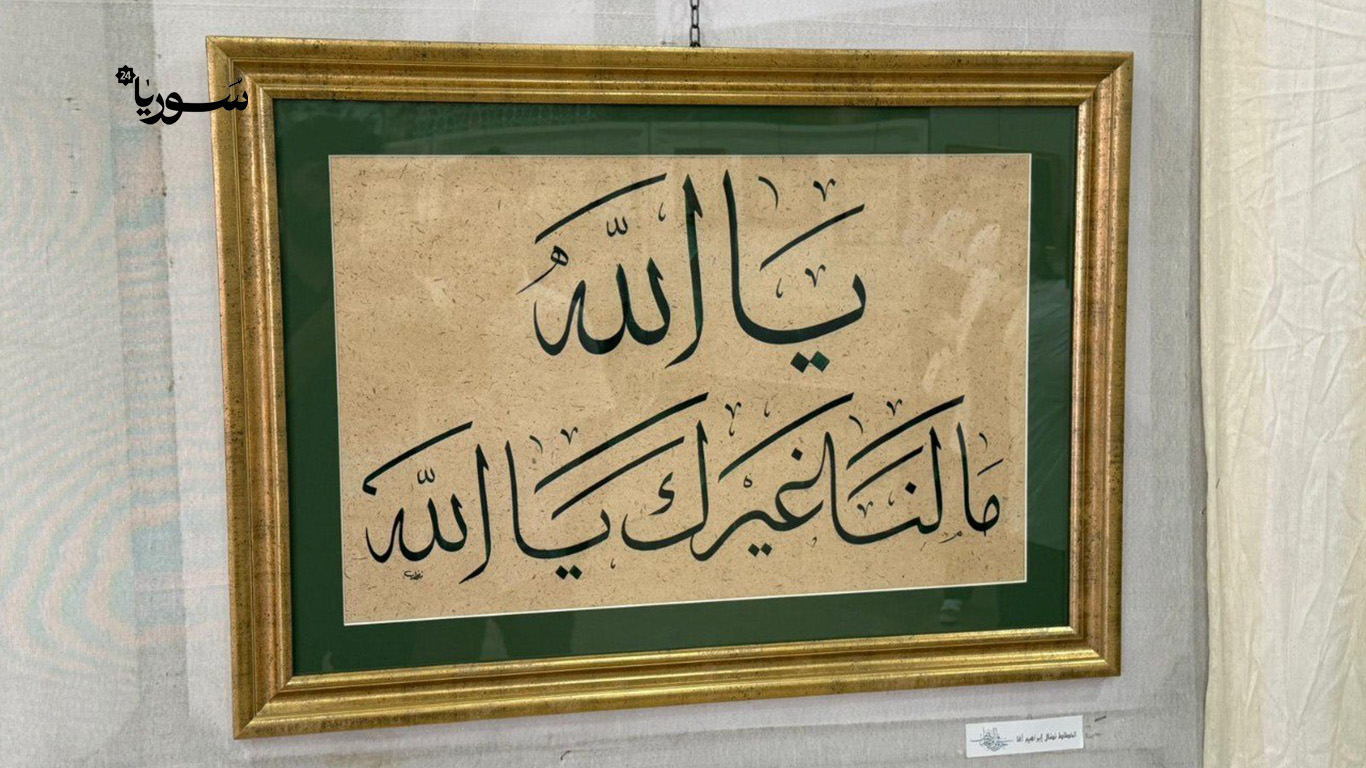 سوريا 24
يا الله
ما لنا غيرك يا الله
الخطاط نضال إبراهيم آغا